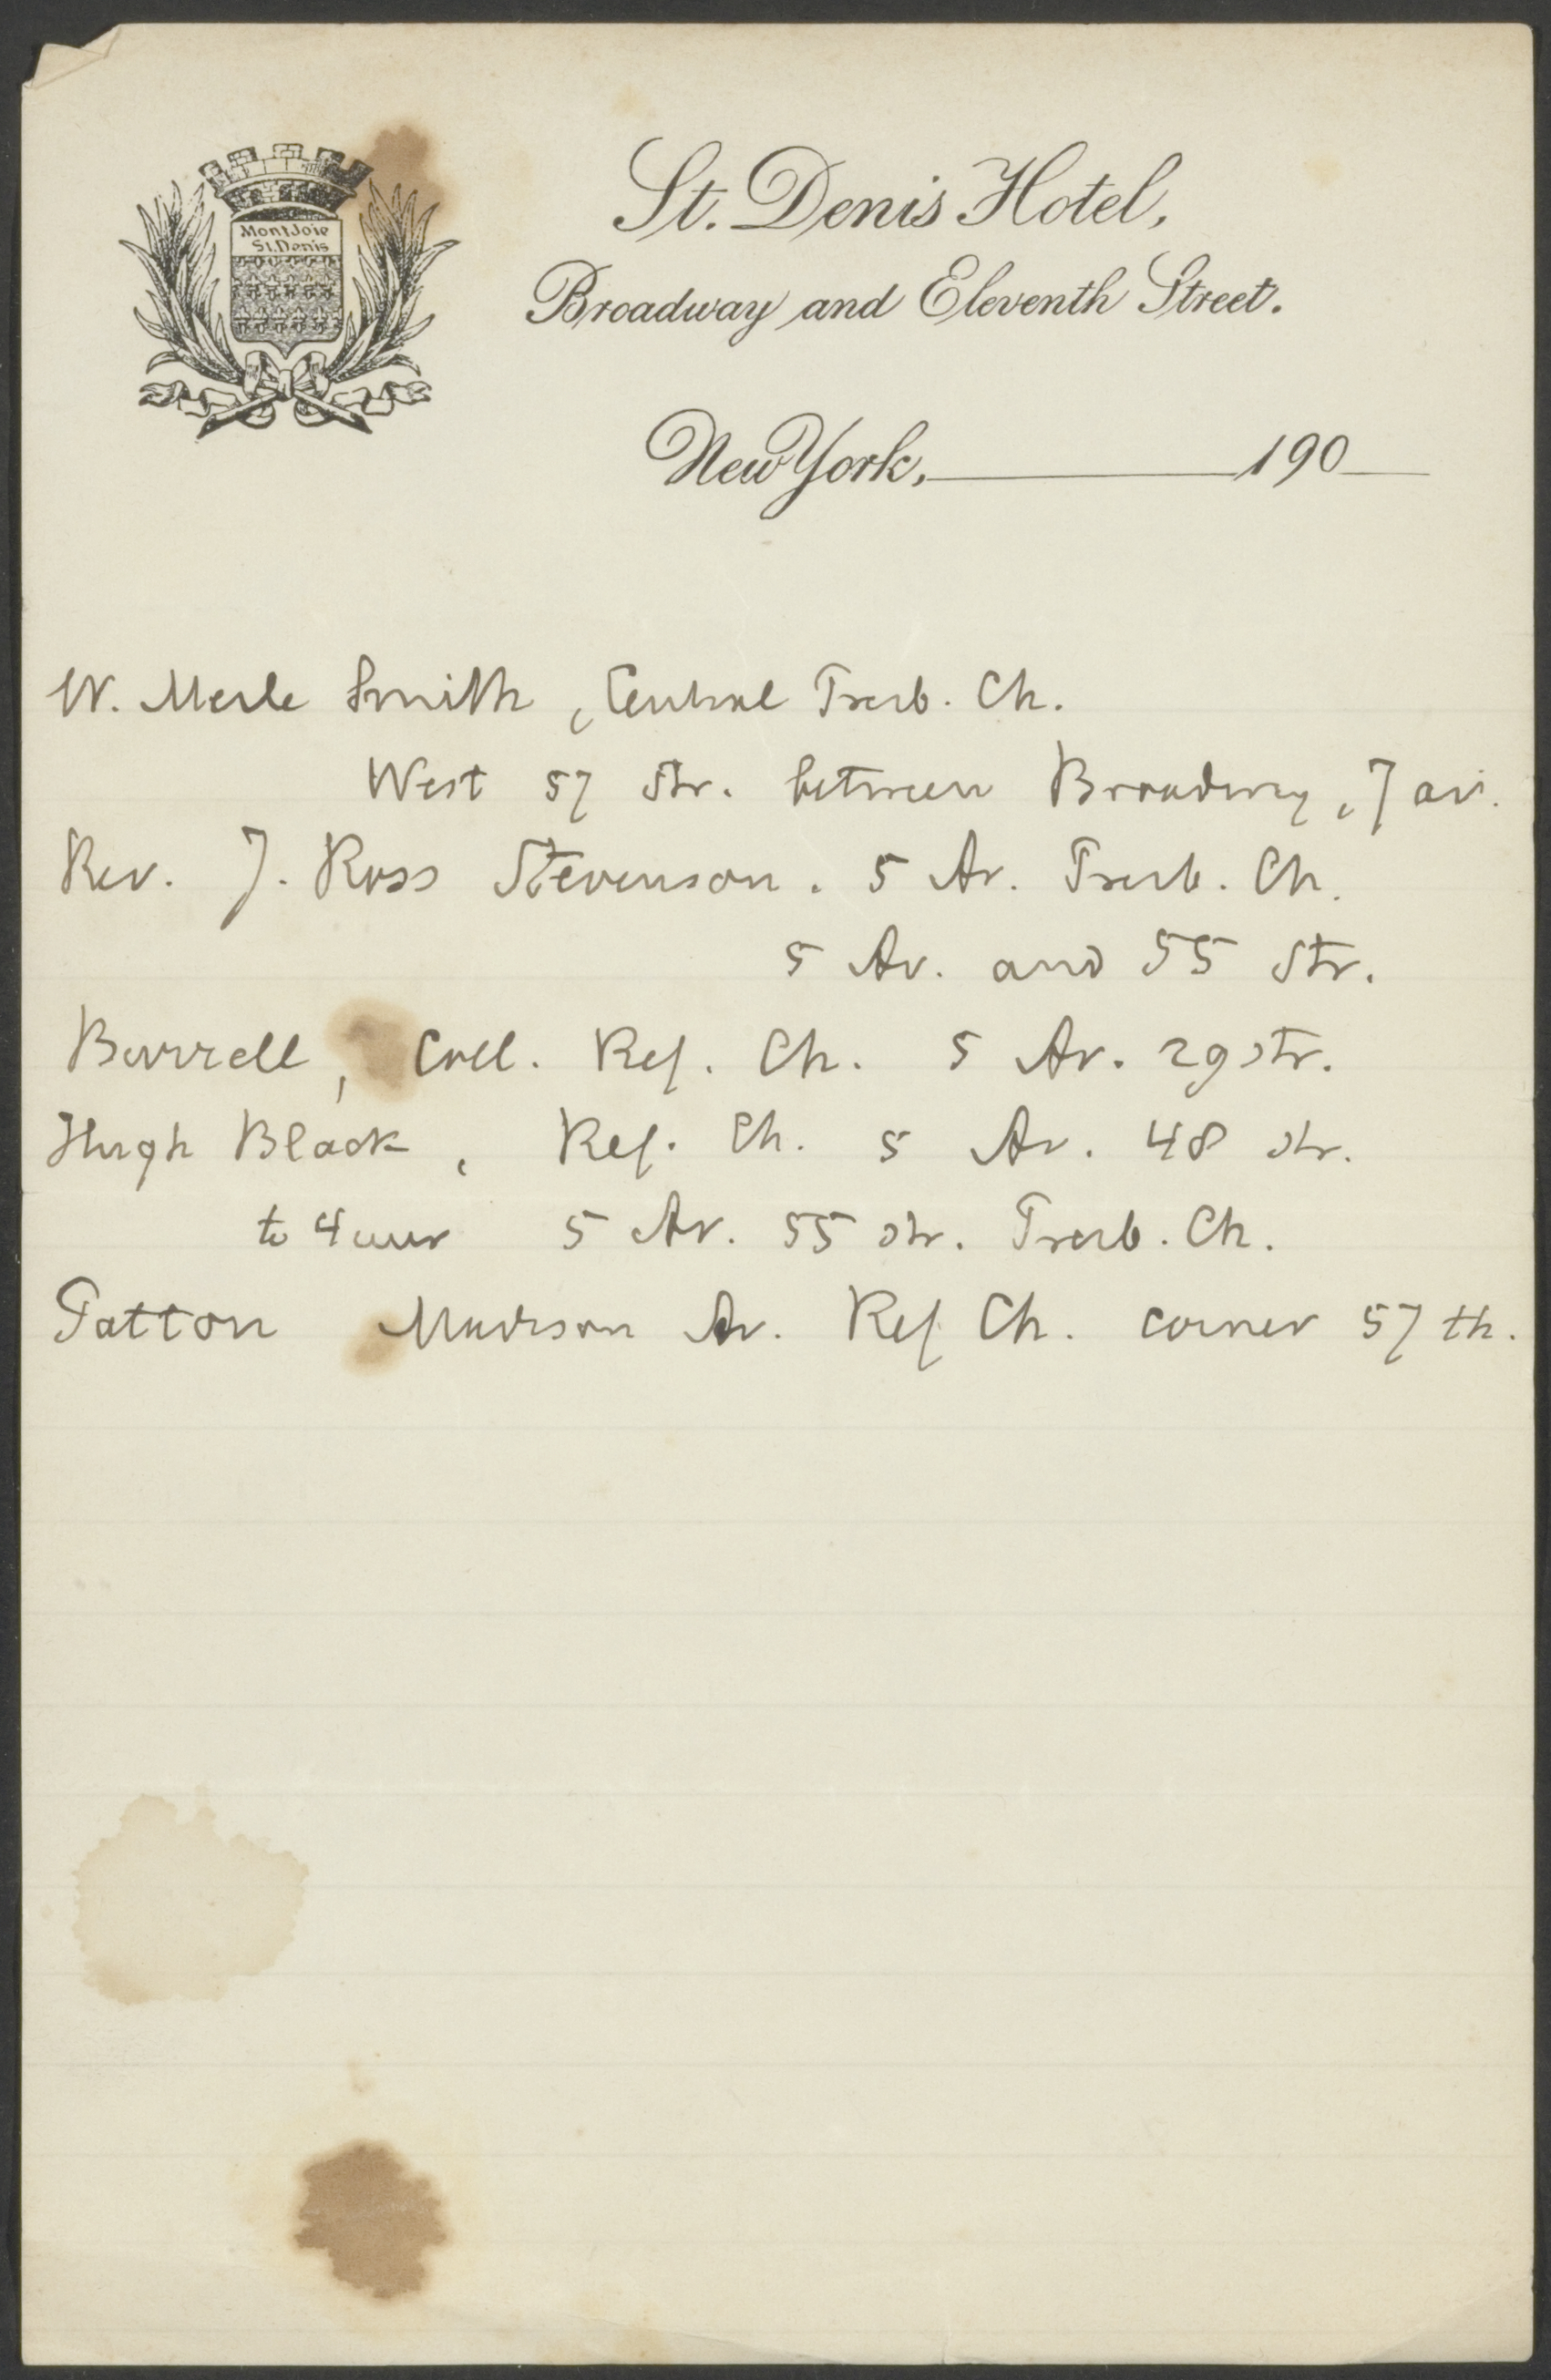 MontJoie
St.Denis
St. Denis Hotel,
Broadway and Eleventh Street.
New York, 190
W. Merle Smith, Central Presb. Ch.
West 57 Str. between Broadway, 7 av.
Rev. J. Ross Stevenson. 5 Av. Presb. Ch.
5 Av. and 55 Str.
Burrell, Coll. Ref. Ch. 5 Av. 29 str.
Hugh Black, Ref. Ch. 5 Av. 48 str.
to 4 uur 5 Av. 55 str. Presb. Ch.
Patton Madison Av. Ref Ch. corner 57 th.